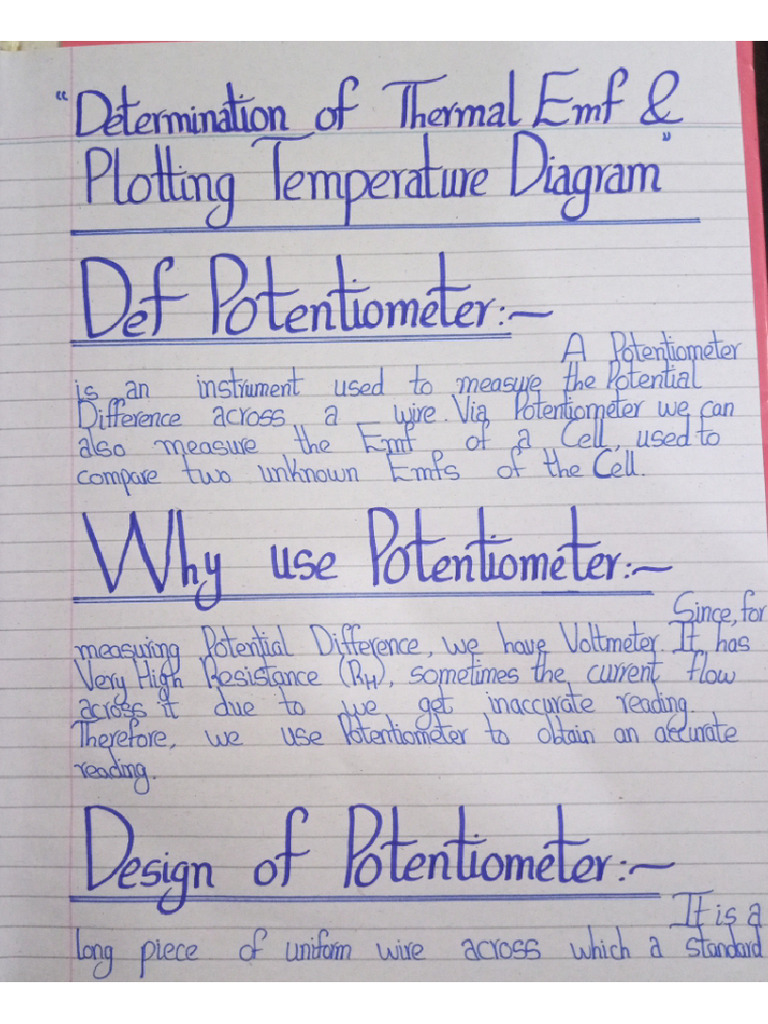 "Determination of Thermal Emf &
Plotting Temperature Diagram"
Def Potentiometer:~
A Potentiometer
is an instrument used to measure the Potential
Difference across a wire. Via Potentiometer we can
also measure the Emf of a Cell, used to
compare two unknown Emfs of the Cell.
Why use Potentiometer:~
Since, for
measuring Potential Difference, we have Voltmeter. It has
Very High Resistance (RH), sometimes the current flow
across it due to we get inaccurate reading.
Therefore, we use Potentiometer to obtain an accurate
reading.
Design of Potentiometer:~
It is a
long piece of uniform wire across which a standard